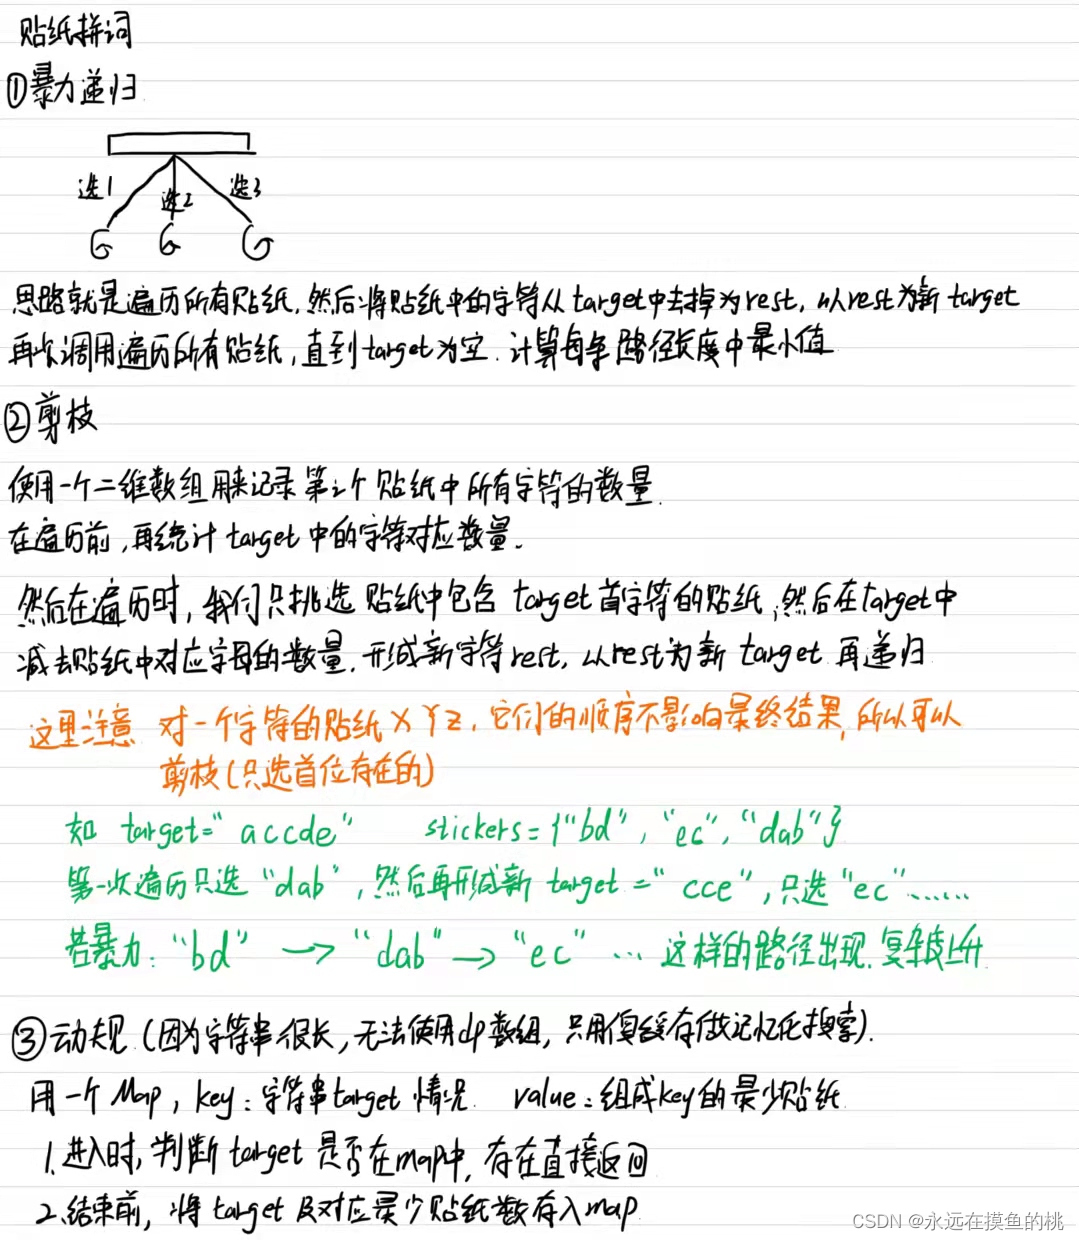 贴纸拼词
①暴力递归
选1 选2 选3
思路就是遍历所有贴纸,然后将贴纸中的字符从target中去掉为rest,以rest为新target
再次调用遍历所有贴纸,直到target为空.计算每条路径长度中最小值
②剪枝
使用一个二维数组用来记录第i个贴纸中所有字符的数量.
在遍历前,再统计target中的字符对应数量.
然后在遍历时,我们只挑选贴纸中包含target首字符的贴纸,然后在target中
减去贴纸中对应字母的数量.形成新字符rest,以rest为新target再递归
这里注意 对一个字符的贴纸XYZ,它们的顺序不影响最终结果,所以可以
剪枝(只选首位存在的)
如 target="accde" stickers={"bd","ec","dab"}
第一次遍历只选"dab",然后再形成新target="cce",只选"ec"......
若暴力:"bd"→"dab"→"ec"...这样的路径出现.复杂度上升
③动规(因为字符串很长,无法使用dp数组,只用傻缓存做记忆化搜索).
用一个Map,key:字符串target情况. value:组成key的最少贴纸
1.进入时,判断target是否在map中,存在直接返回
2.结束前,将target及对应最少贴纸数存入map
CSDN @永远在摸鱼的桃